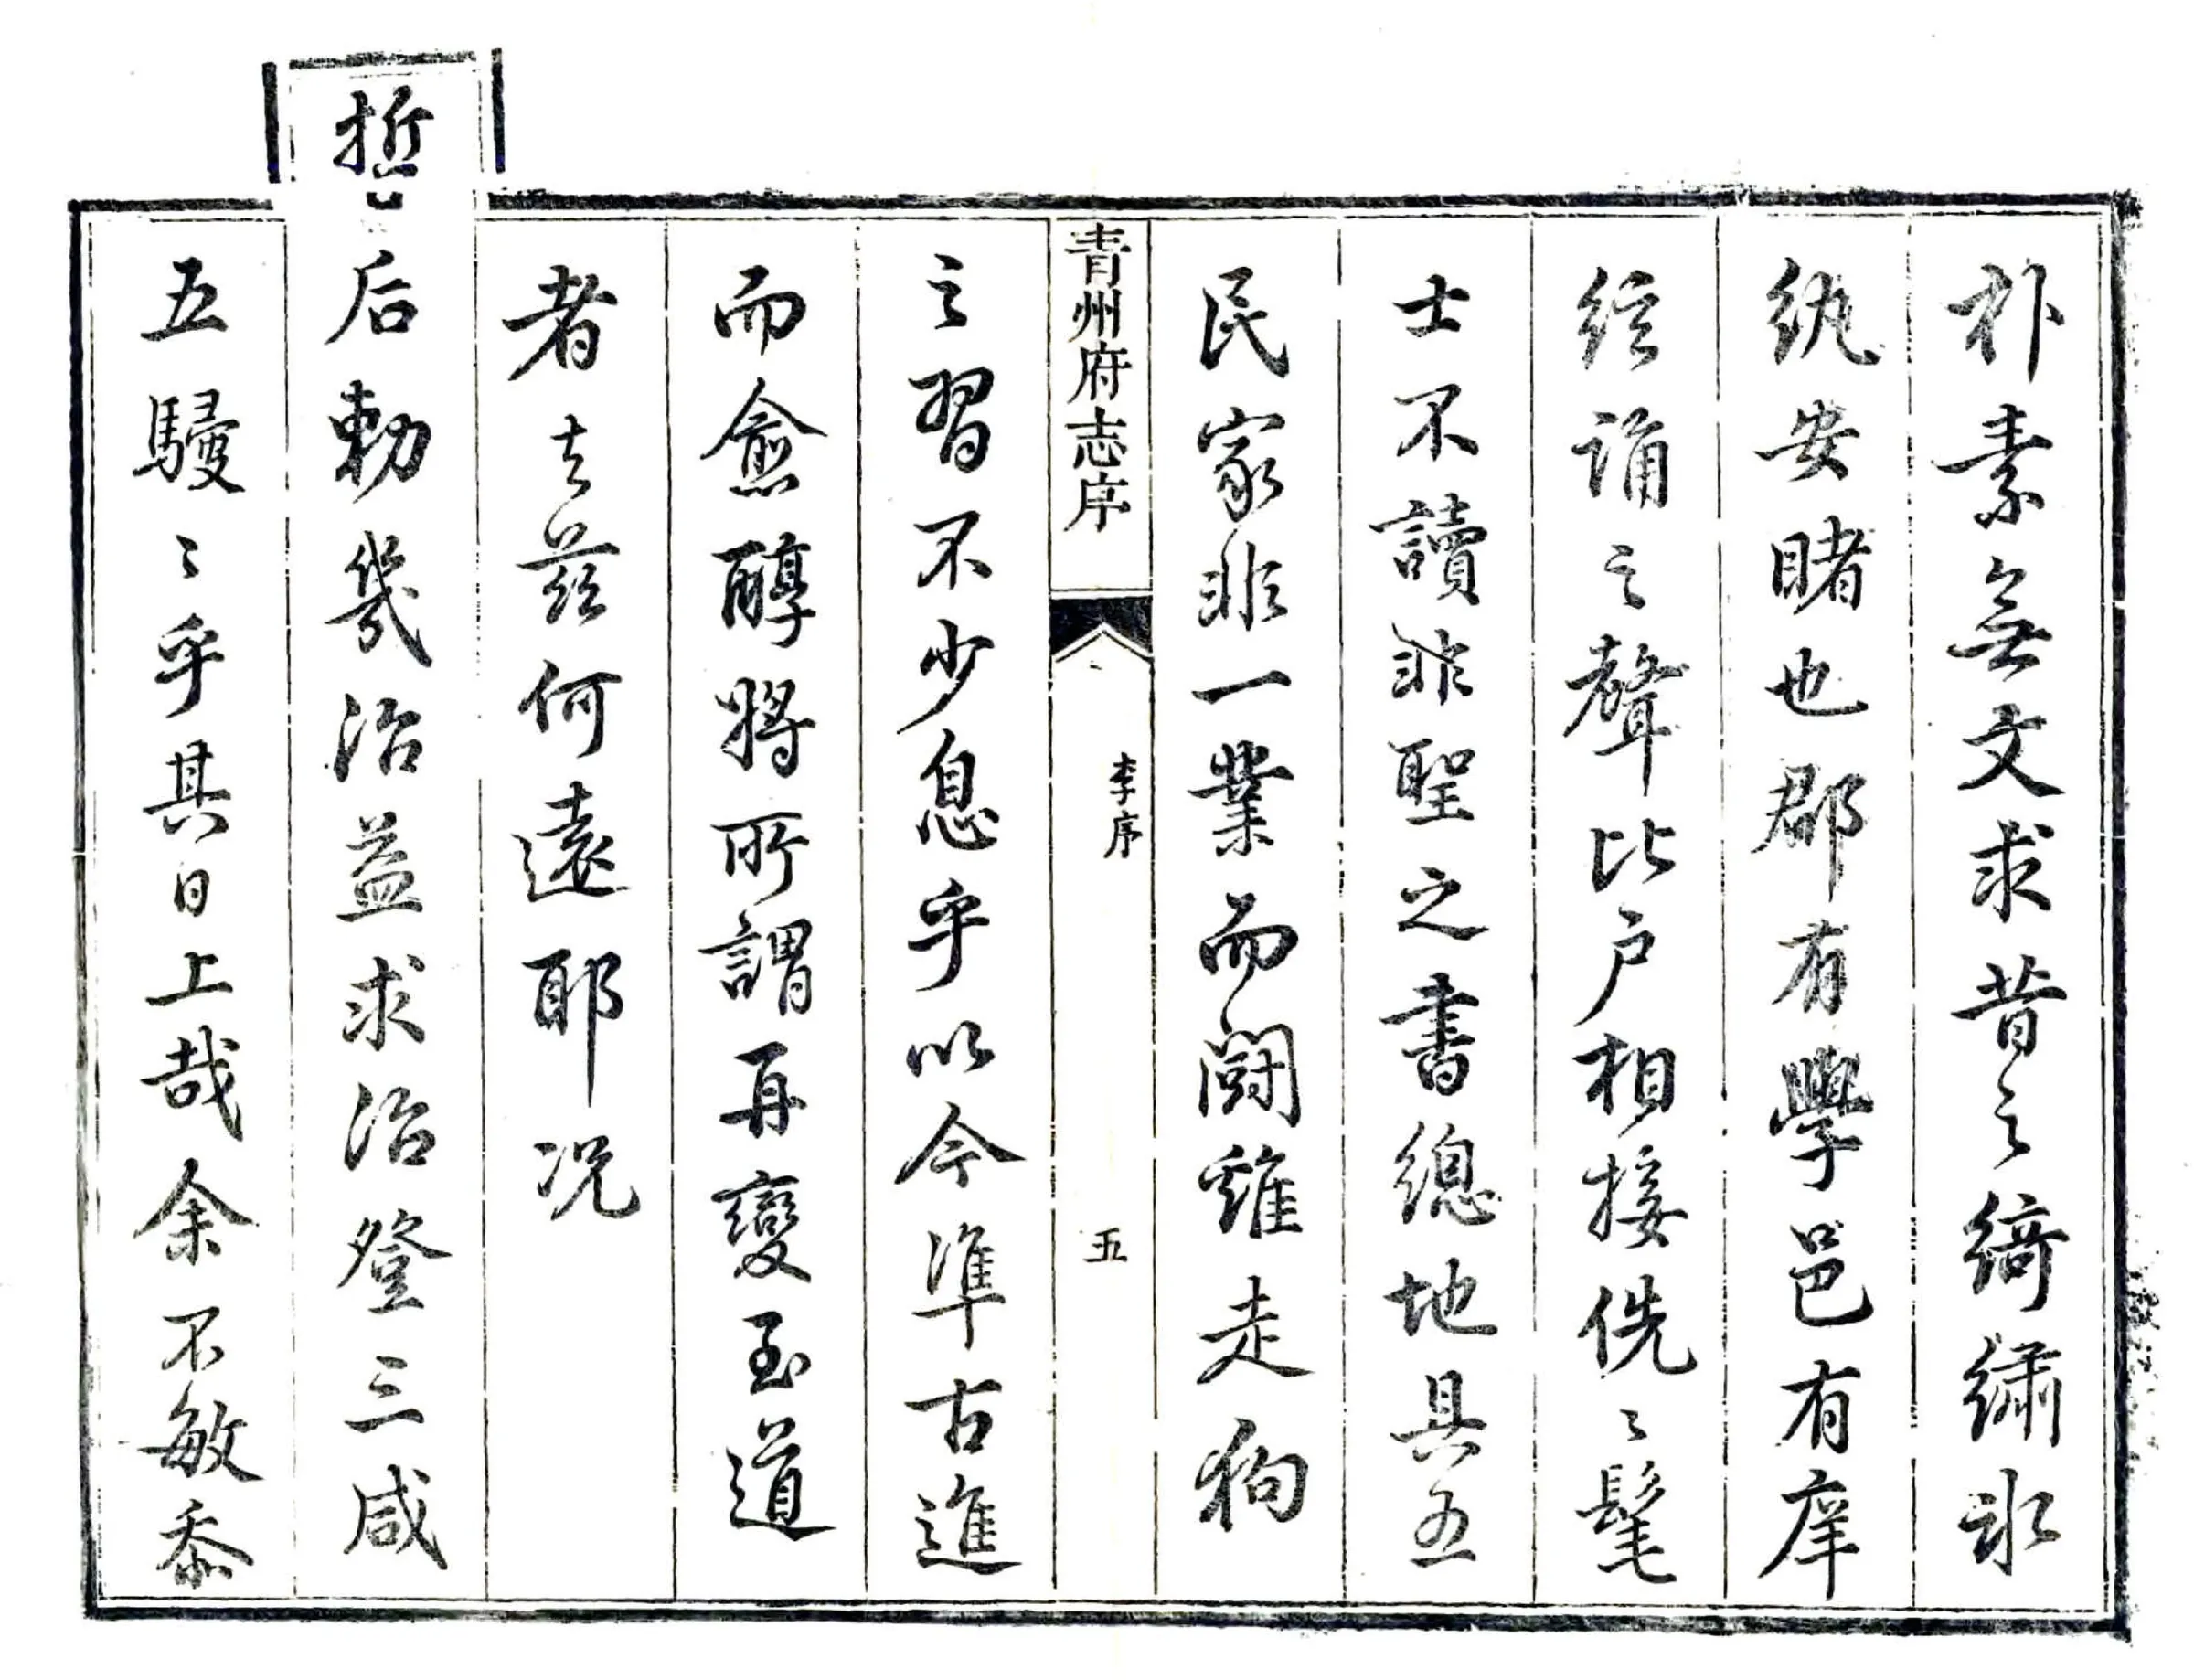 朴素無文求昔之綺繡氷
紈安睹也郡有學邑有庠
絃誦之聲比戶相接侁〻髦
士不讀非聖之書總地具五
民家非一業而鬪雞走狗
青州府志序
李序
五
之習不少息乎以今準古進
而愈醇將所謂再變至道
者去茲何遠耶况
哲后勅幾治益求治登三咸
五駸〻乎其日上哉余不敏忝